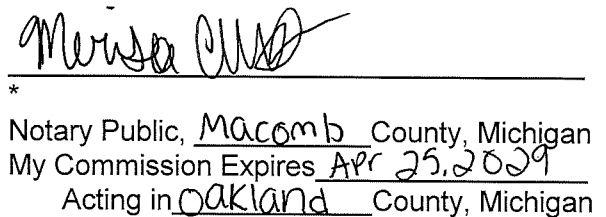 Merisa
*
Notary Public, Macomb County, Michigan
My Commission Expires Apr 25, 2029
Acting in Oakland County, Michigan